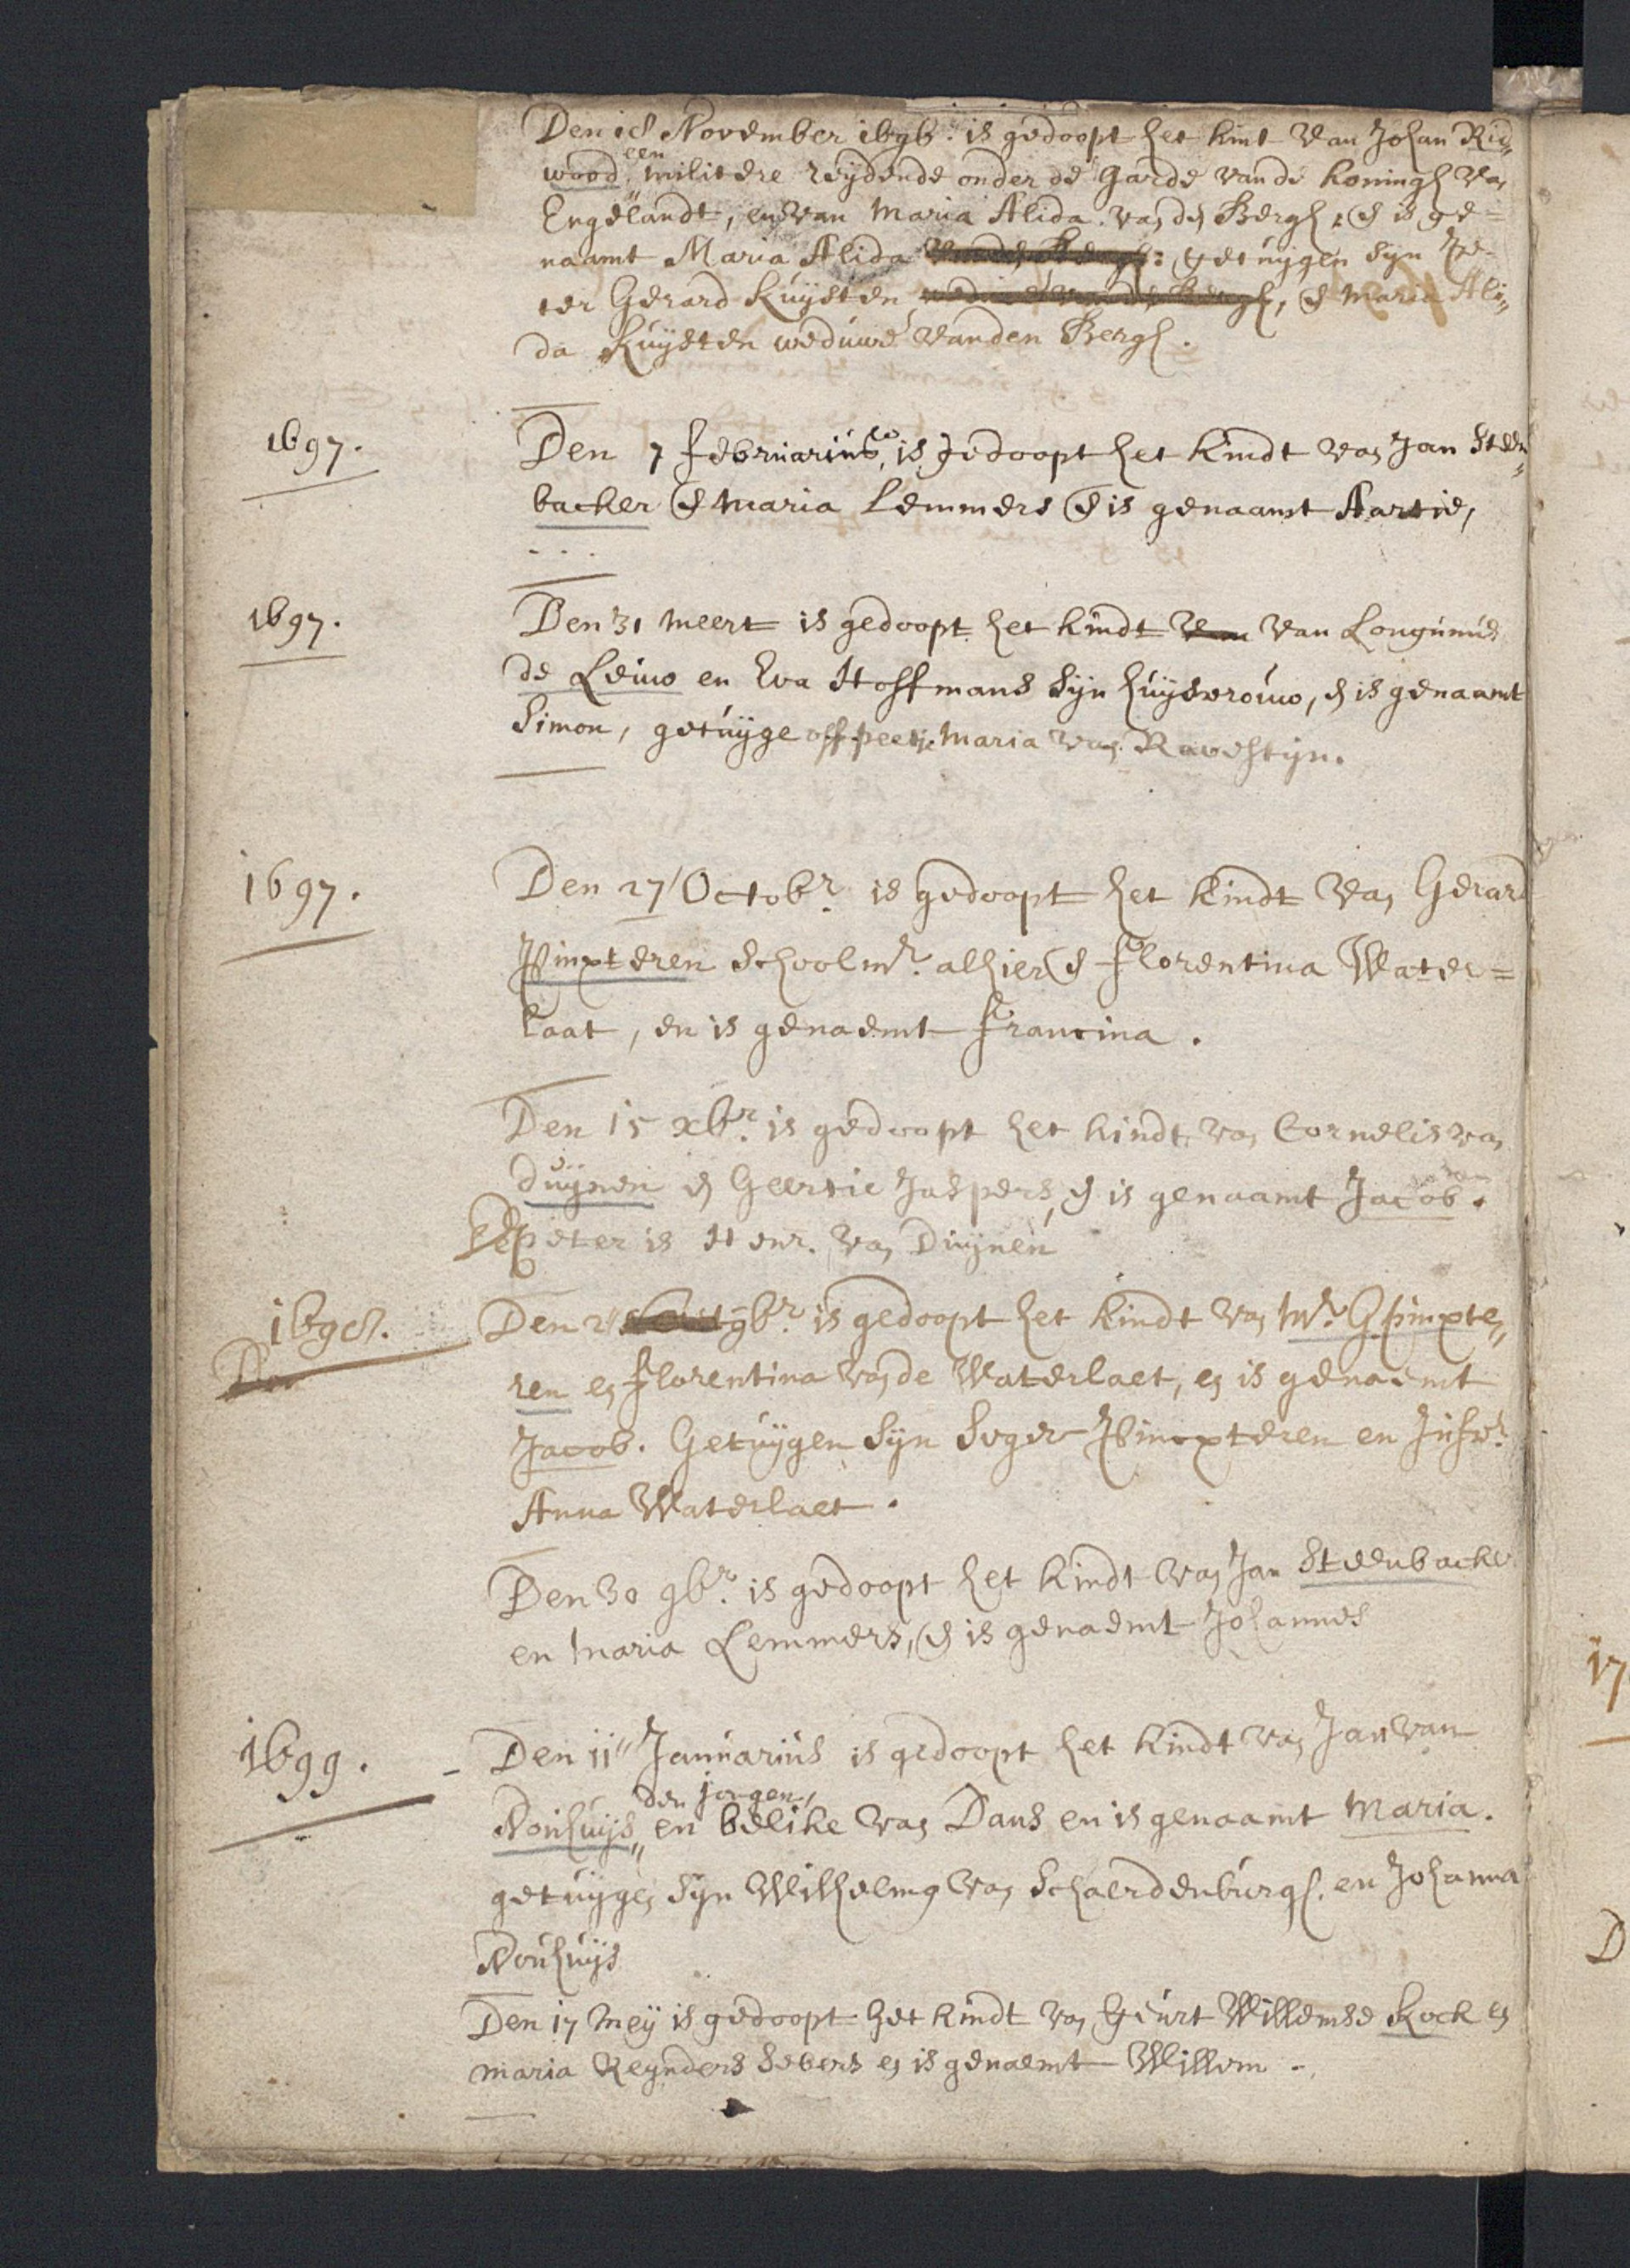 Den 18 November 1696. is gedoopt het kint van Johan Rid„
wood, een militere reijdende onder de Garde vande koningh van
Engelandt, en van Maria Alida van den Bergh, & is ge=
naamt Maria Alida vanden Bergh: getuijgen sijn Pe-
ter Gerard Kuijsten, weduwe vanden Bergh, & Maria Ali„
da Kuijsten weduwe vanden Bergh.
1697.
Den 7 Februarius, is gedoopt het kindt van Jan Steen„
backer & Maria Lemmers & is genaamt Aartie,
1697.
Den 31 Meert is gedoopt het kindt van van Longinus
de Leuw en Eva Hoffmans sijn huijsvrouw, en is genaamt
Simon, getuijge off peetje Maria van Ravestijn.
1697.
Den 27 Octobr. is gedoopt het kindt van Gerard
Pinxteren Schoolmr. alhier & Florentina Water=
laat, en is genaemt Francina.
Den 15 xbr. is gedoopt het kindt van Cornelis van
Duijnen en Geertie Jaspers, en is genaamt Jacob.
Peter is Henr. van Duijnen
1698.
Den 2 9br. is gedoopt het kindt van Mr. G Pinxte„
ren en Florentina van de Waterlaet, en is genaemt
Jacob. Getuijgen sijn Seger Pinxteren en Jufr.
Anna Waterlaet.
Den 30 9br. is gedoopt het kindt van Jan Steenbacker
en Maria Lemmers, & is genaemt Johannes
1699.
Den 11 Januarius is gedoopt het kindt van Jan van
den jongen,
Nouhuijs„ en Belike van Dans en is genaamt Maria.
getuijgen sijn Wilhelmg van Schaerdenburgh. en Johanna
Nouhuijs
Den 17 Meij is gedoopt het kindt van Geurt Willemse Kock en
Maria Reijnders Sebers en is genaemt Willem.
17
D